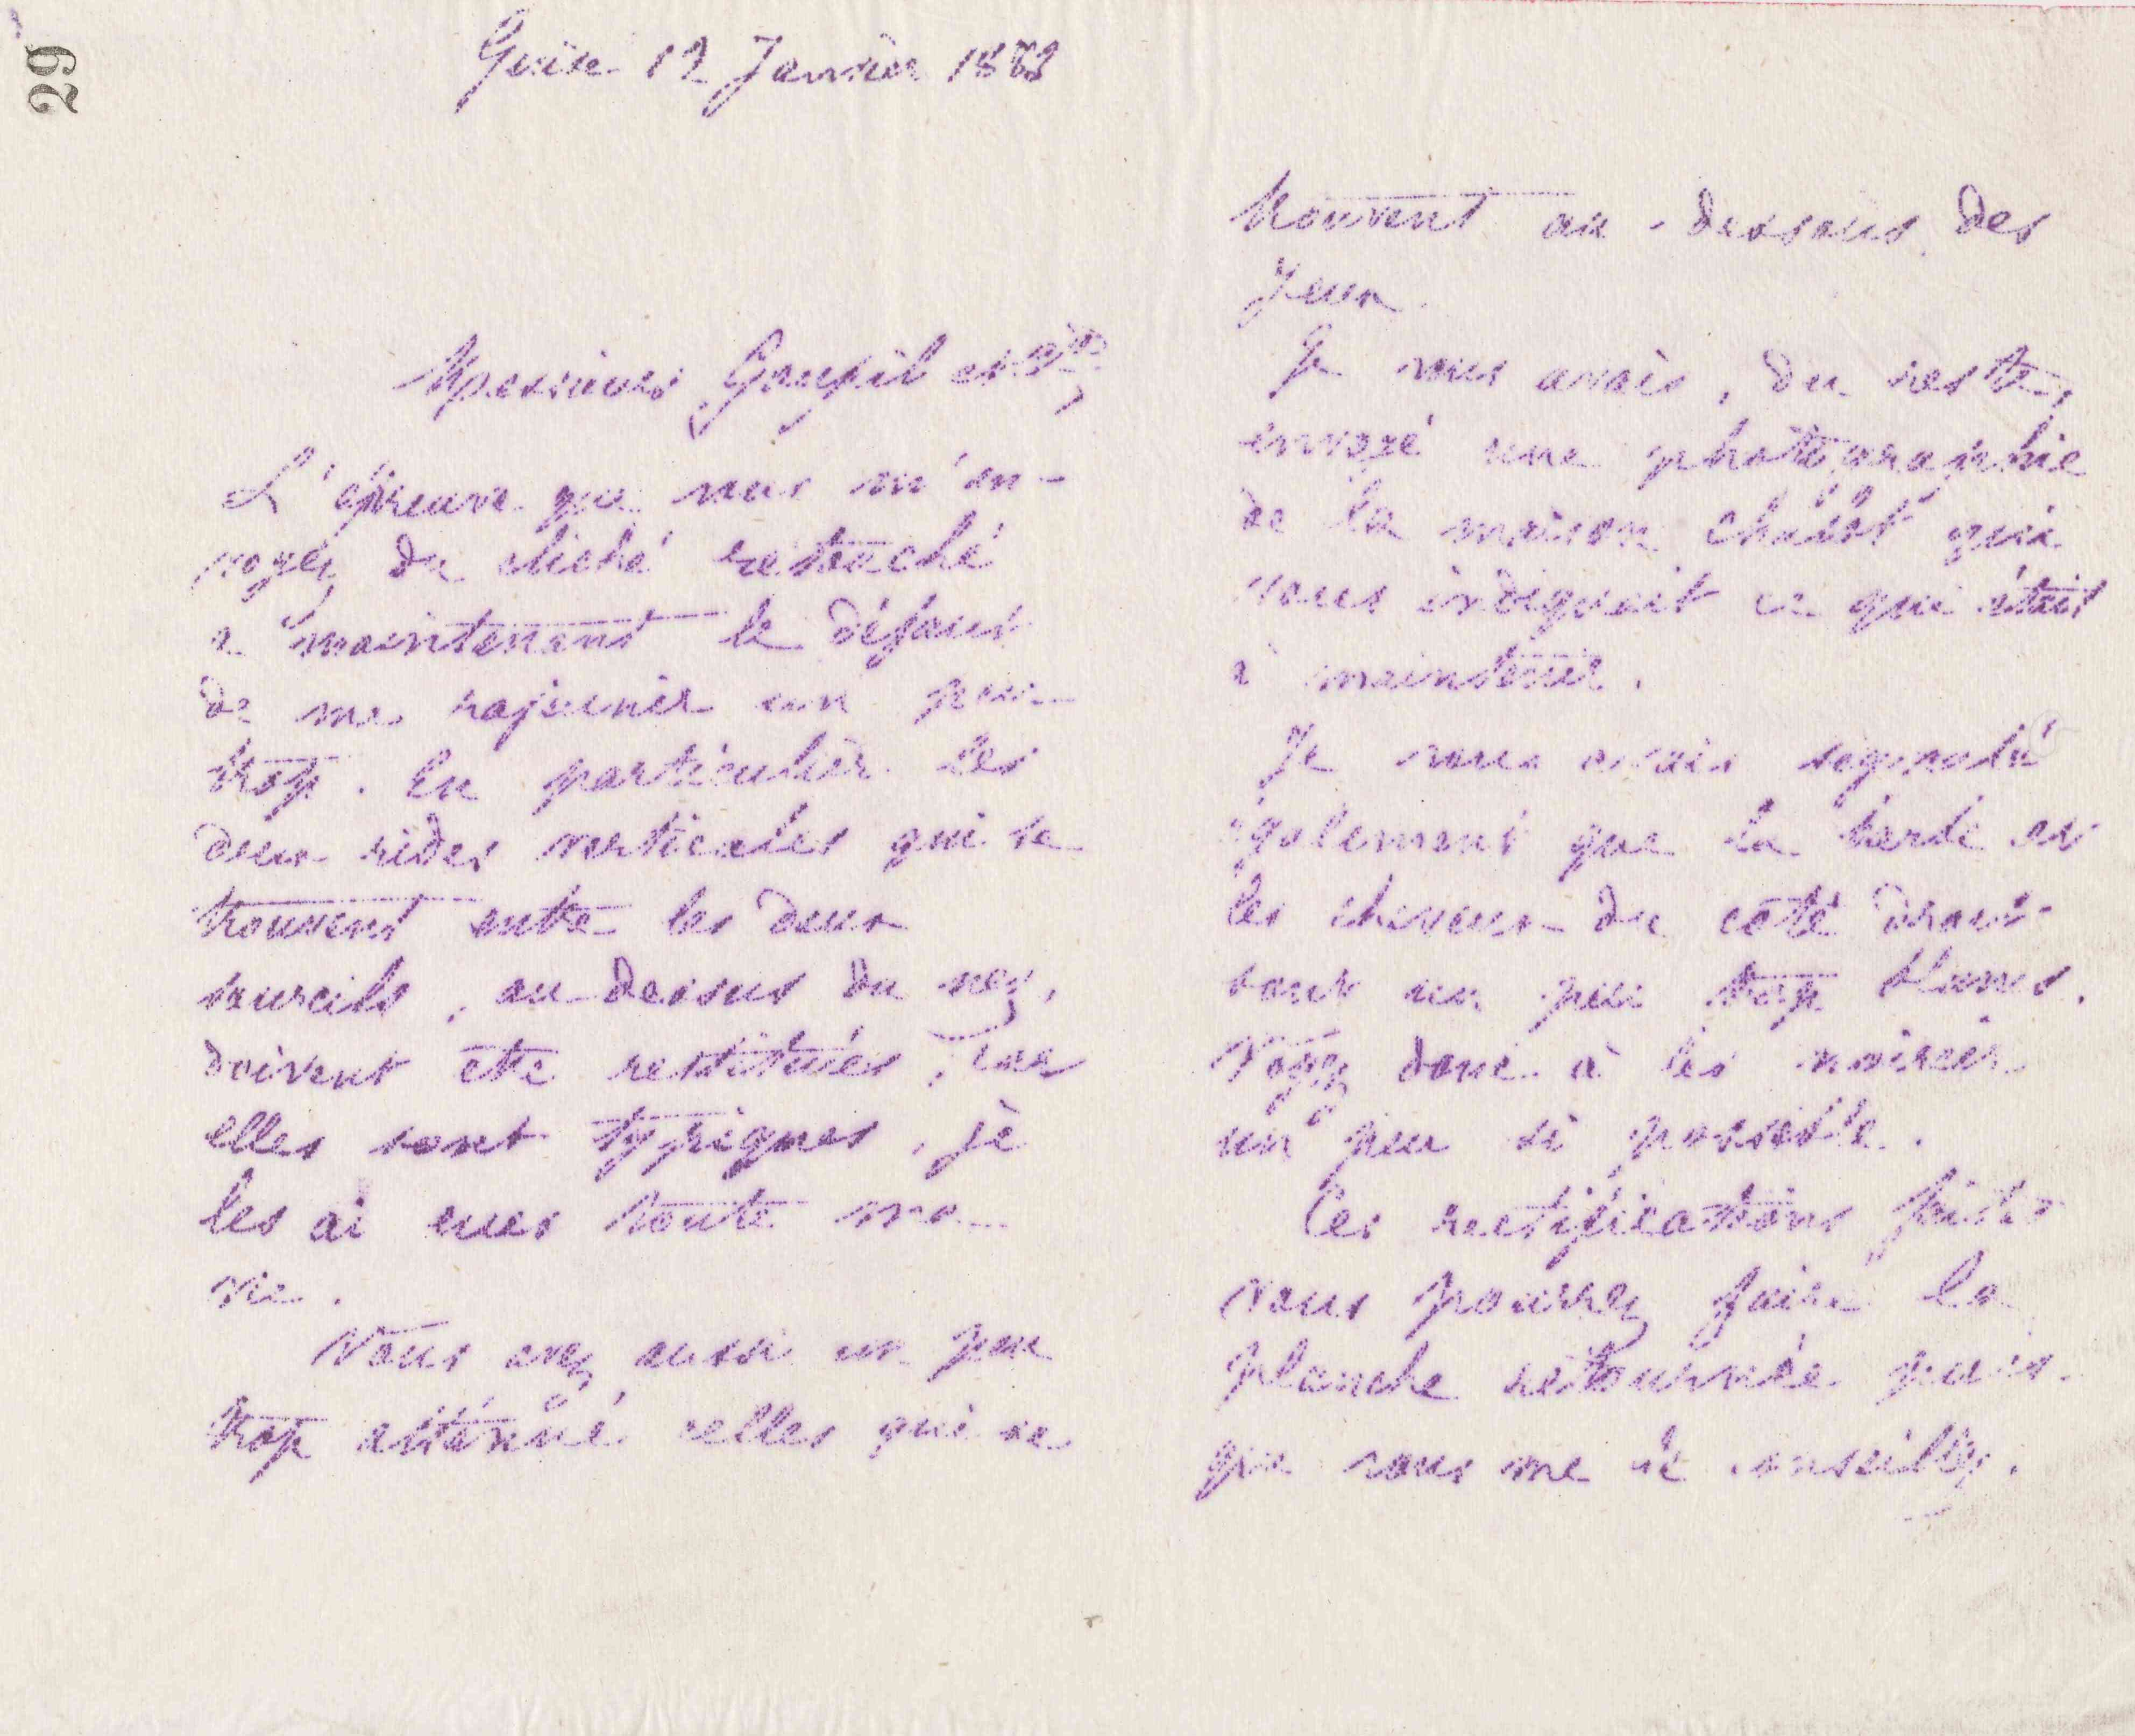 29
Guise 12 Janvier 1883
Messieurs Goupil et Cie,
L'épreuve que vous m'en-
voyez du cliché retouché
a maintenant le défaut
de me rajeunir un peu
trop. En particulier les
deux rides verticales qui se
trouvent entre les deux
sourcils, au-dessus du nez,
doivent être restituées, car
elles sont typiques, je
les ai eues toute ma
vie.
Vous avez aussi un peu
trop atténué celles qui se
trouvent au-dessous des
yeux.
Je vous avais, du reste,
envoyé une photographie
de la maison qui
vous indiquait ce qui était
à maintenir.
Je vous avais signalé
également que la barbe et
les cheveux du côté droit
sont un peu trop blancs.
Voyez donc à les noircir
un peu si possible.
Ces rectifications faites
vous pourrez faire la
planche retournée puis-
que vous me le conseillez.